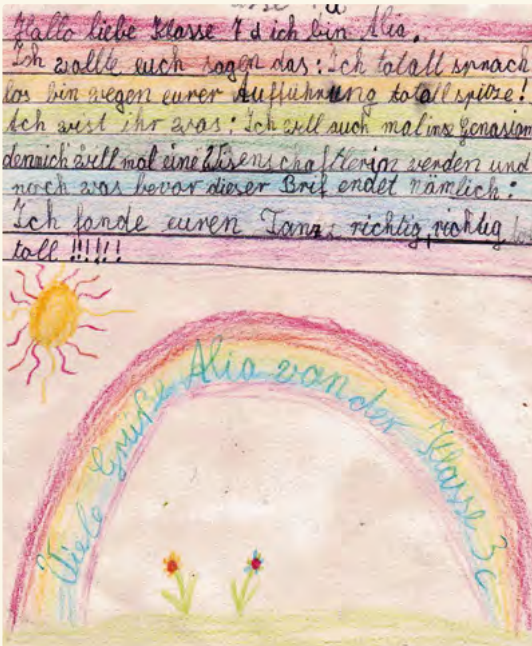 Hallo liebe Klasse 7d ich bin Alia.
Ich wollte euch sagen das: Ich totall sprach
los bin wegen eurer Aufführung totall spitze!
Ach wist ihr was: Ich will auch mal ins Genasium
dennich will mal eine Wisenschaftlerin werden und
noch was bevor dieser Brif endet nämlich:
Ich fande euren Tanz richtig, richtig
toll !!!!!!
Viele Grüße Alia von der Klasse 3c